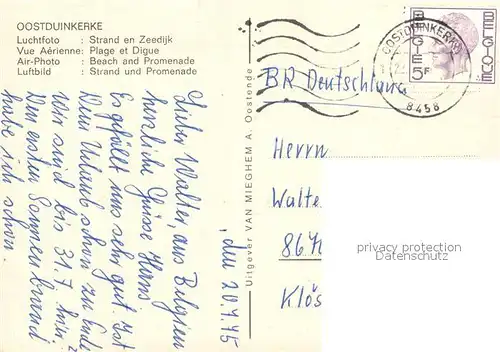 OOSTDUINKERKE
Luchtfoto : Strand en Zeedijk
Vue Aérienne: Plage et Digue
Air-Photo : Beach and Promenade
Luftbild : Strand und Promenade
, den 20.7.75
Lieber Walter, aus Belgien
herzliche Grüsse Hans
Es gefällt uns sehr gut. Ist
Dein Urlaub schon zu Ende
wir sind bis 31.7. hier
Den ersten Sonnenbrand
habe ich schon.
Uitgever VAN MIEGHEM A. Oostende
BELGIE 5F BELGIQUE
OOSTDUINKERKE
8458
BR Deutschland
Herrn
Walte
86
Klös
privacy protection
Datenschutz